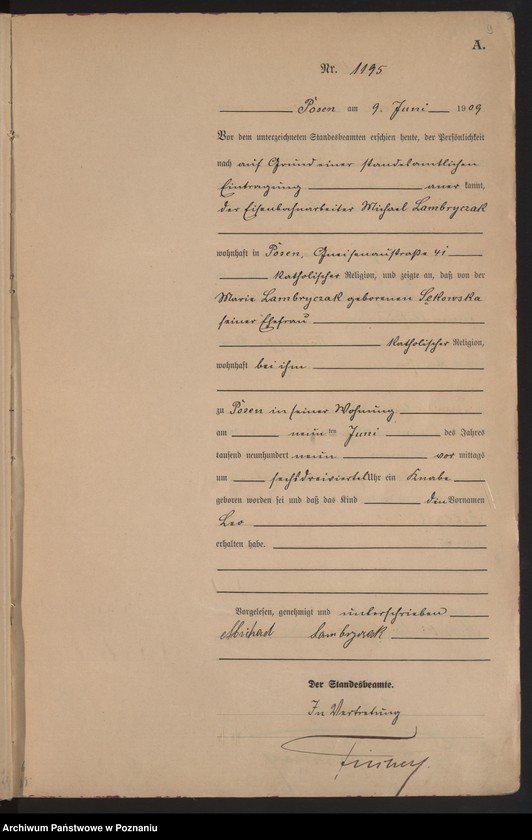 9
A.
Nr. 1195
Posen am 9. Juni 1909
Vor dem unterzeichneten Standesbeamten erschien heute, der Persönlichkeit
nach auf Grund einer standesamtlichen
Eintragung aner kannt,
der Eisenbahnarbeiter Michael Lambryczak
wohnhaft in Posen, Gneisenaustraße 41
katholischer Religion, und zeigte an, daß von der
Marie Lambryczak geborenen Sękowska
seiner Ehefrau
katholischer Religion,
wohnhaft bei ihm
zu Posen in seiner Wohnung
am neun ten Juni des Jahres
tausend neunhundert neun vor mittags
um sechsdreiviertel Uhr ein Knabe
geboren worden sei und daß das Kind den Vornamen
Leo
erhalten habe.
Vorgelesen, genehmigt und unterschrieben
Michael Lambryczak
Der Standesbeamte.
In Vertretung
Archiwum Państwowe w Poznaniu